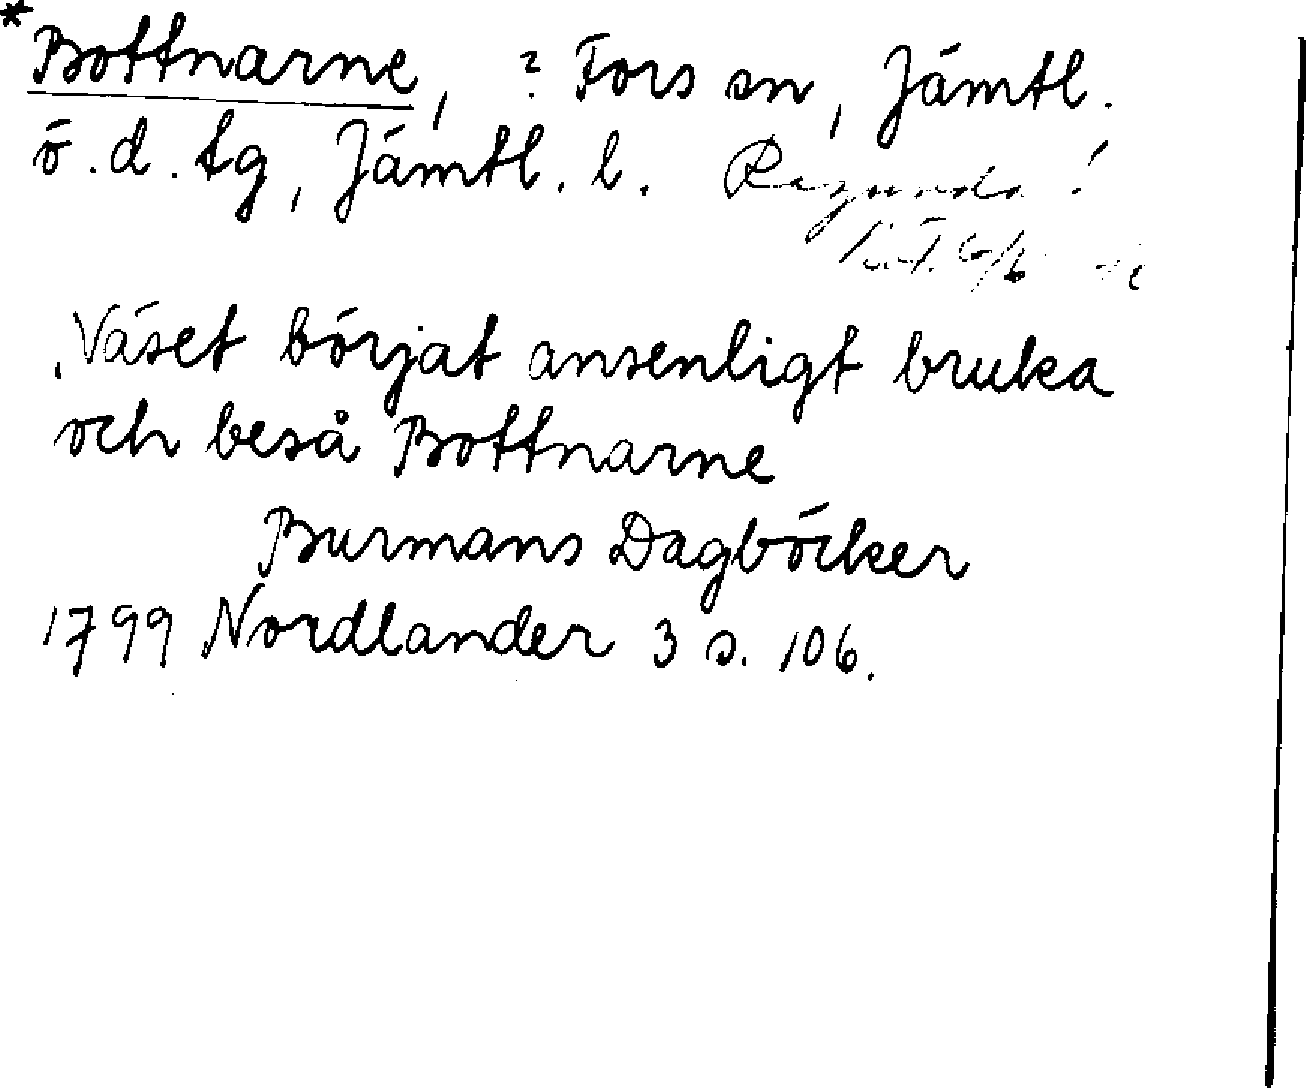 *Bottnarne, ? Fors sn, Jämtl.
ö. d. tg, Jämtl. l. Ragunda!
Väset börjat ansenligt bruka
och beså Bottnarne
Burmans Dagböcker
1799 Nordlander 3 s. 106.